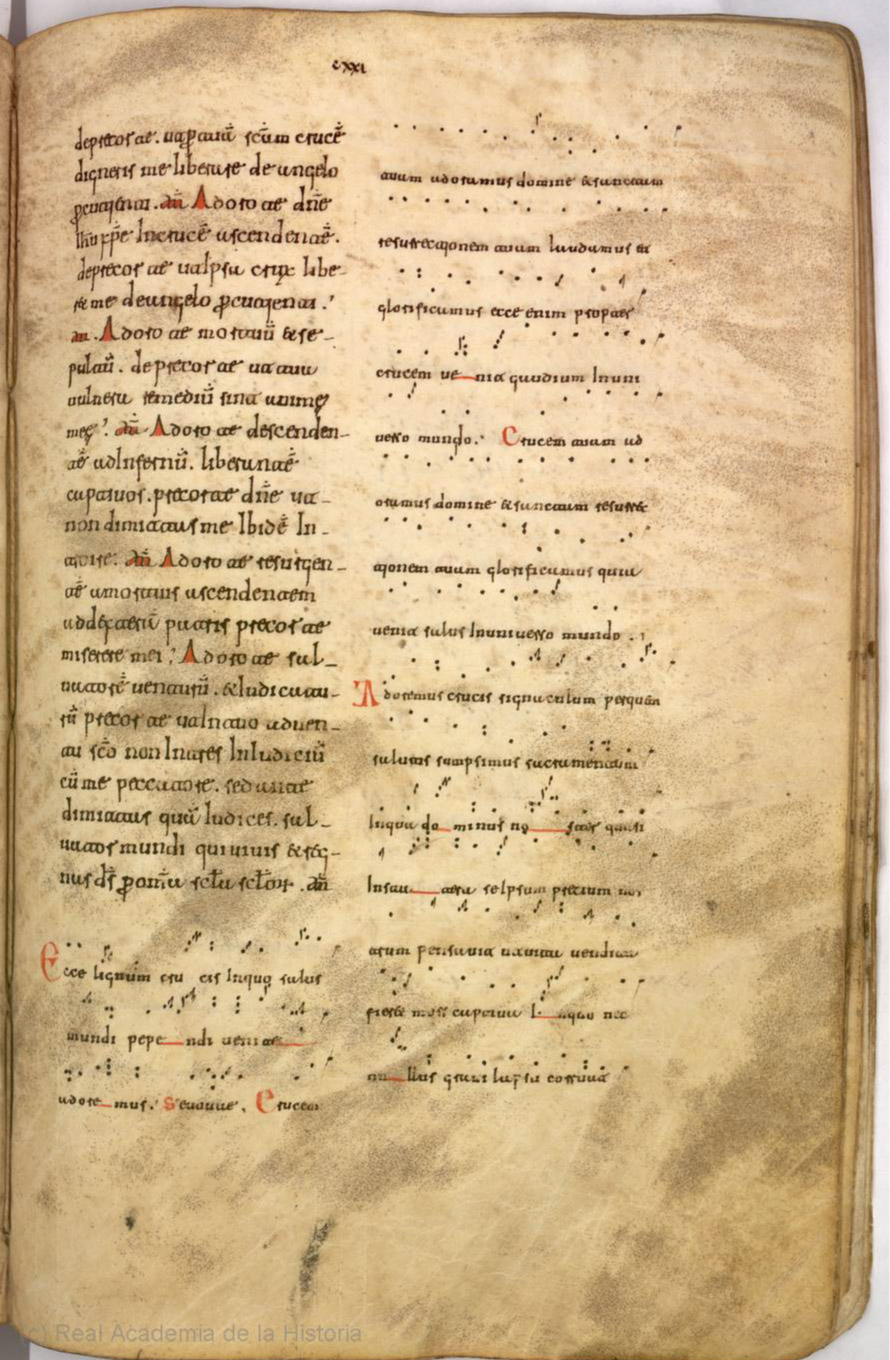 cxxi
deprecor te. ut p̱ tuā sc̄am crucē
digneris me liberare de angelo
p̱cutienti. añ Adoro te dñe
ih̄u xp̄e In crucē ascendentē.
deprecor te ut Ipsa crux libe-
ret me de angelo p̱cutienti.
añ. Adoro te mortuū & se-
pultū. deprecor te ut tua
uulnera remediū sint animę
meę. añ Adoro te descenden-
tē ad Infernū. liberantē
captiuos. precor te dñe ut
non dimittas me Ibidē In-
troire. añ Adoro te resurgen-
tē a mortuis ascendentem
ad dexterā patris precor te
miserere mei. Adoro te sal-
uatorē uenturū. & Iudicatu-
rū precor te ut In tuo aduen-
tu sc̄o non Intres In Iudiciū
cū me peccatore. sed ante
dimittas quā Iudices. sal-
uator mundi qui uiuis & reg-
nas ds̄ p̱ omīa sc̄la sc̄lor. añ
Ecce lignum cru cis In quo salus
mundi pepe ndi uenite
adore mus. Seuouae. Crucem
tuam adoramus domine & sanctam
resurrectionem tuam laudamus et
glorificamus ecce enim propter
crucem ue nit gaudium In uni
uerso mundo. Crucem tuam ad
oramus domine & sanctam resurrec
tionem tuam glorificamus quia
uenit salus In uniuerso mundo.
Adoremus crucis signaculum per quām
salutis sumpsimus sacramentum
In qua do minus no ster quasi
In sta tera se Ipsum precium nos
trum pensauit ut uitam uendica
ret mors captiua In quo nec
nu llus graui lapsu corruat
(c) Real Academia de la Historia